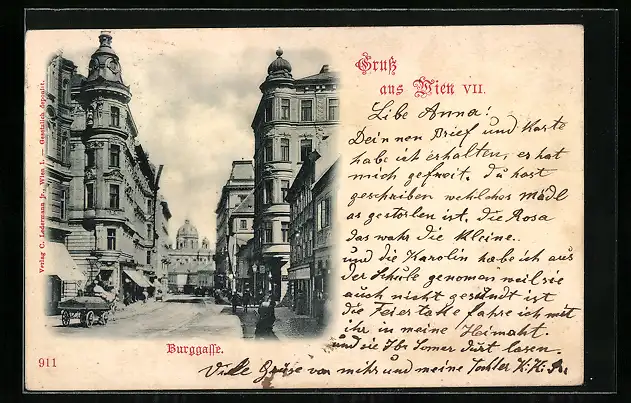 Gruß
aus Wien VII.
Verlag C. Ledermann jr., Wien I. — Gesetzlich deponirt.
Libe Anna!
Deinnen Brief und Karte
habe ich erhalten, es hat
mich gefreit. du hast
geschriben welches Mädl
as gestorben ist. die Rosa
das wahr die Kleine..
und die Karolin habe ich aus
der Schule genomen weil sie
auch nicht gesund ist
die Feiertake fahre ich mit
ihr in meine Heimaht.
und sie Ibr Somer dort lasen.
Vielle Grüse von mihr und meine Tochter K. K.
911
Burggasse.